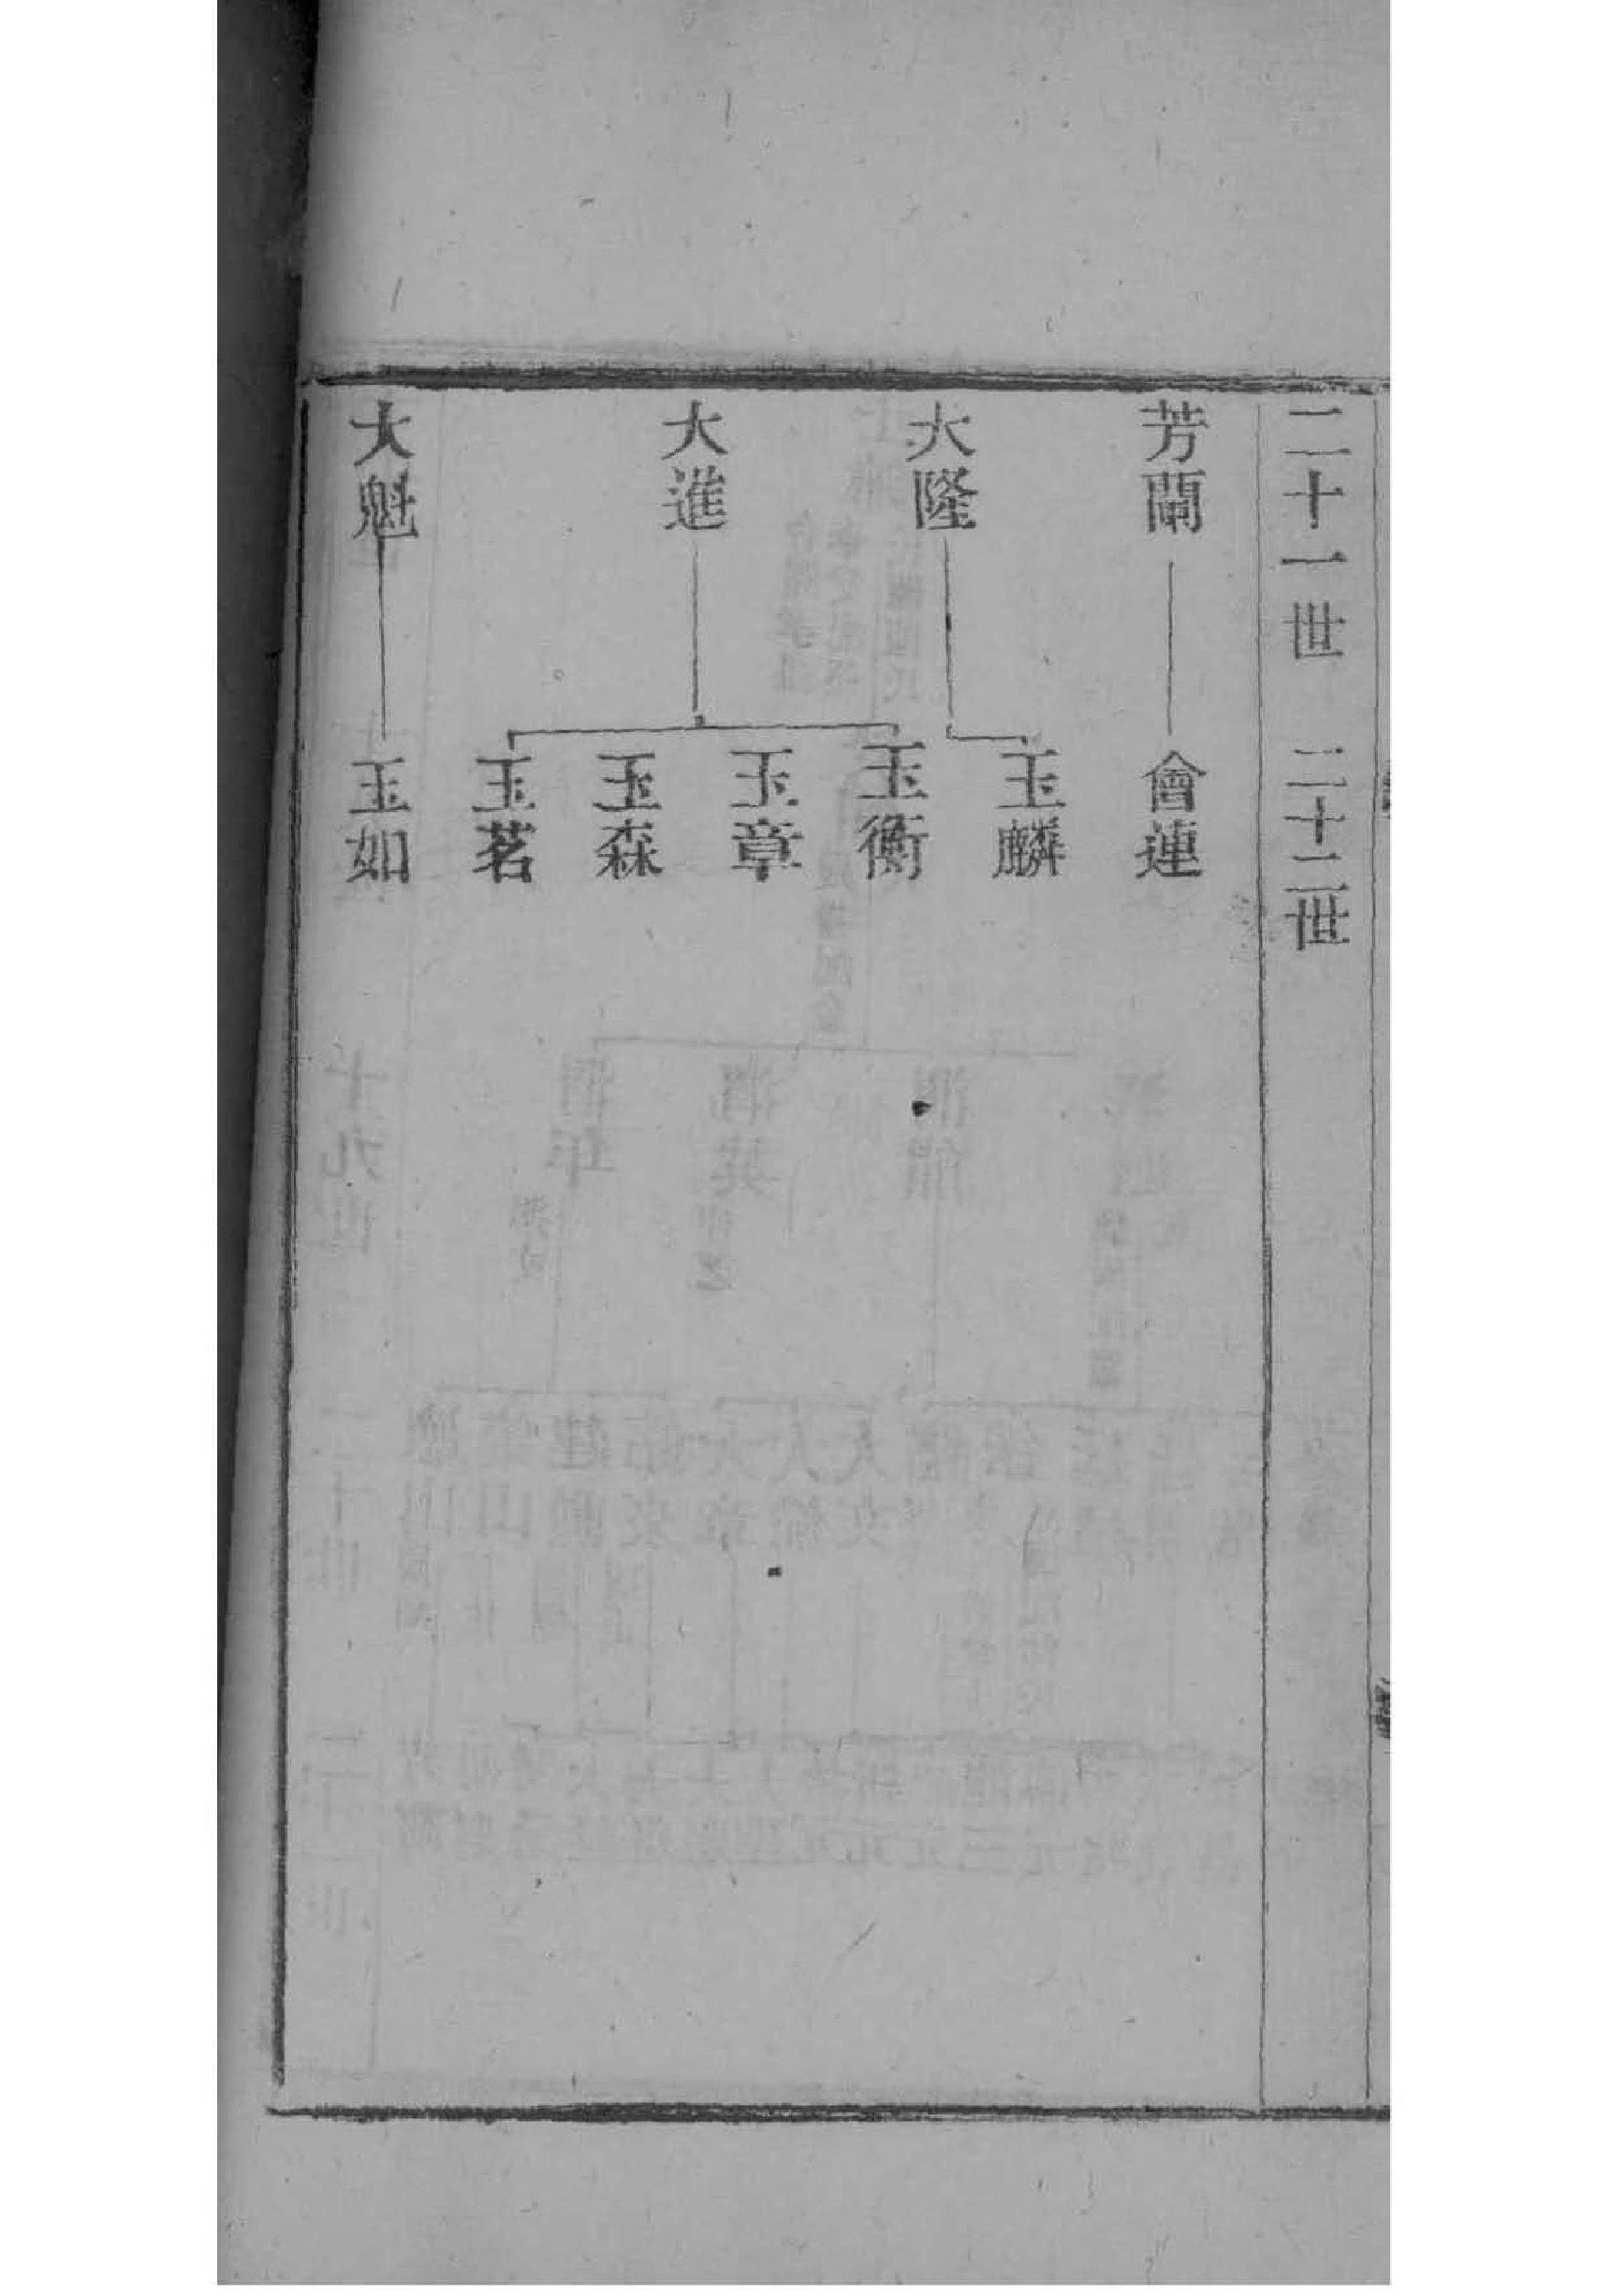 二十一世
二十二世
芳蘭
會蓮
大隆
玉麟
大進
玉衡
玉章
玉森
玉茗
大魁
玉如